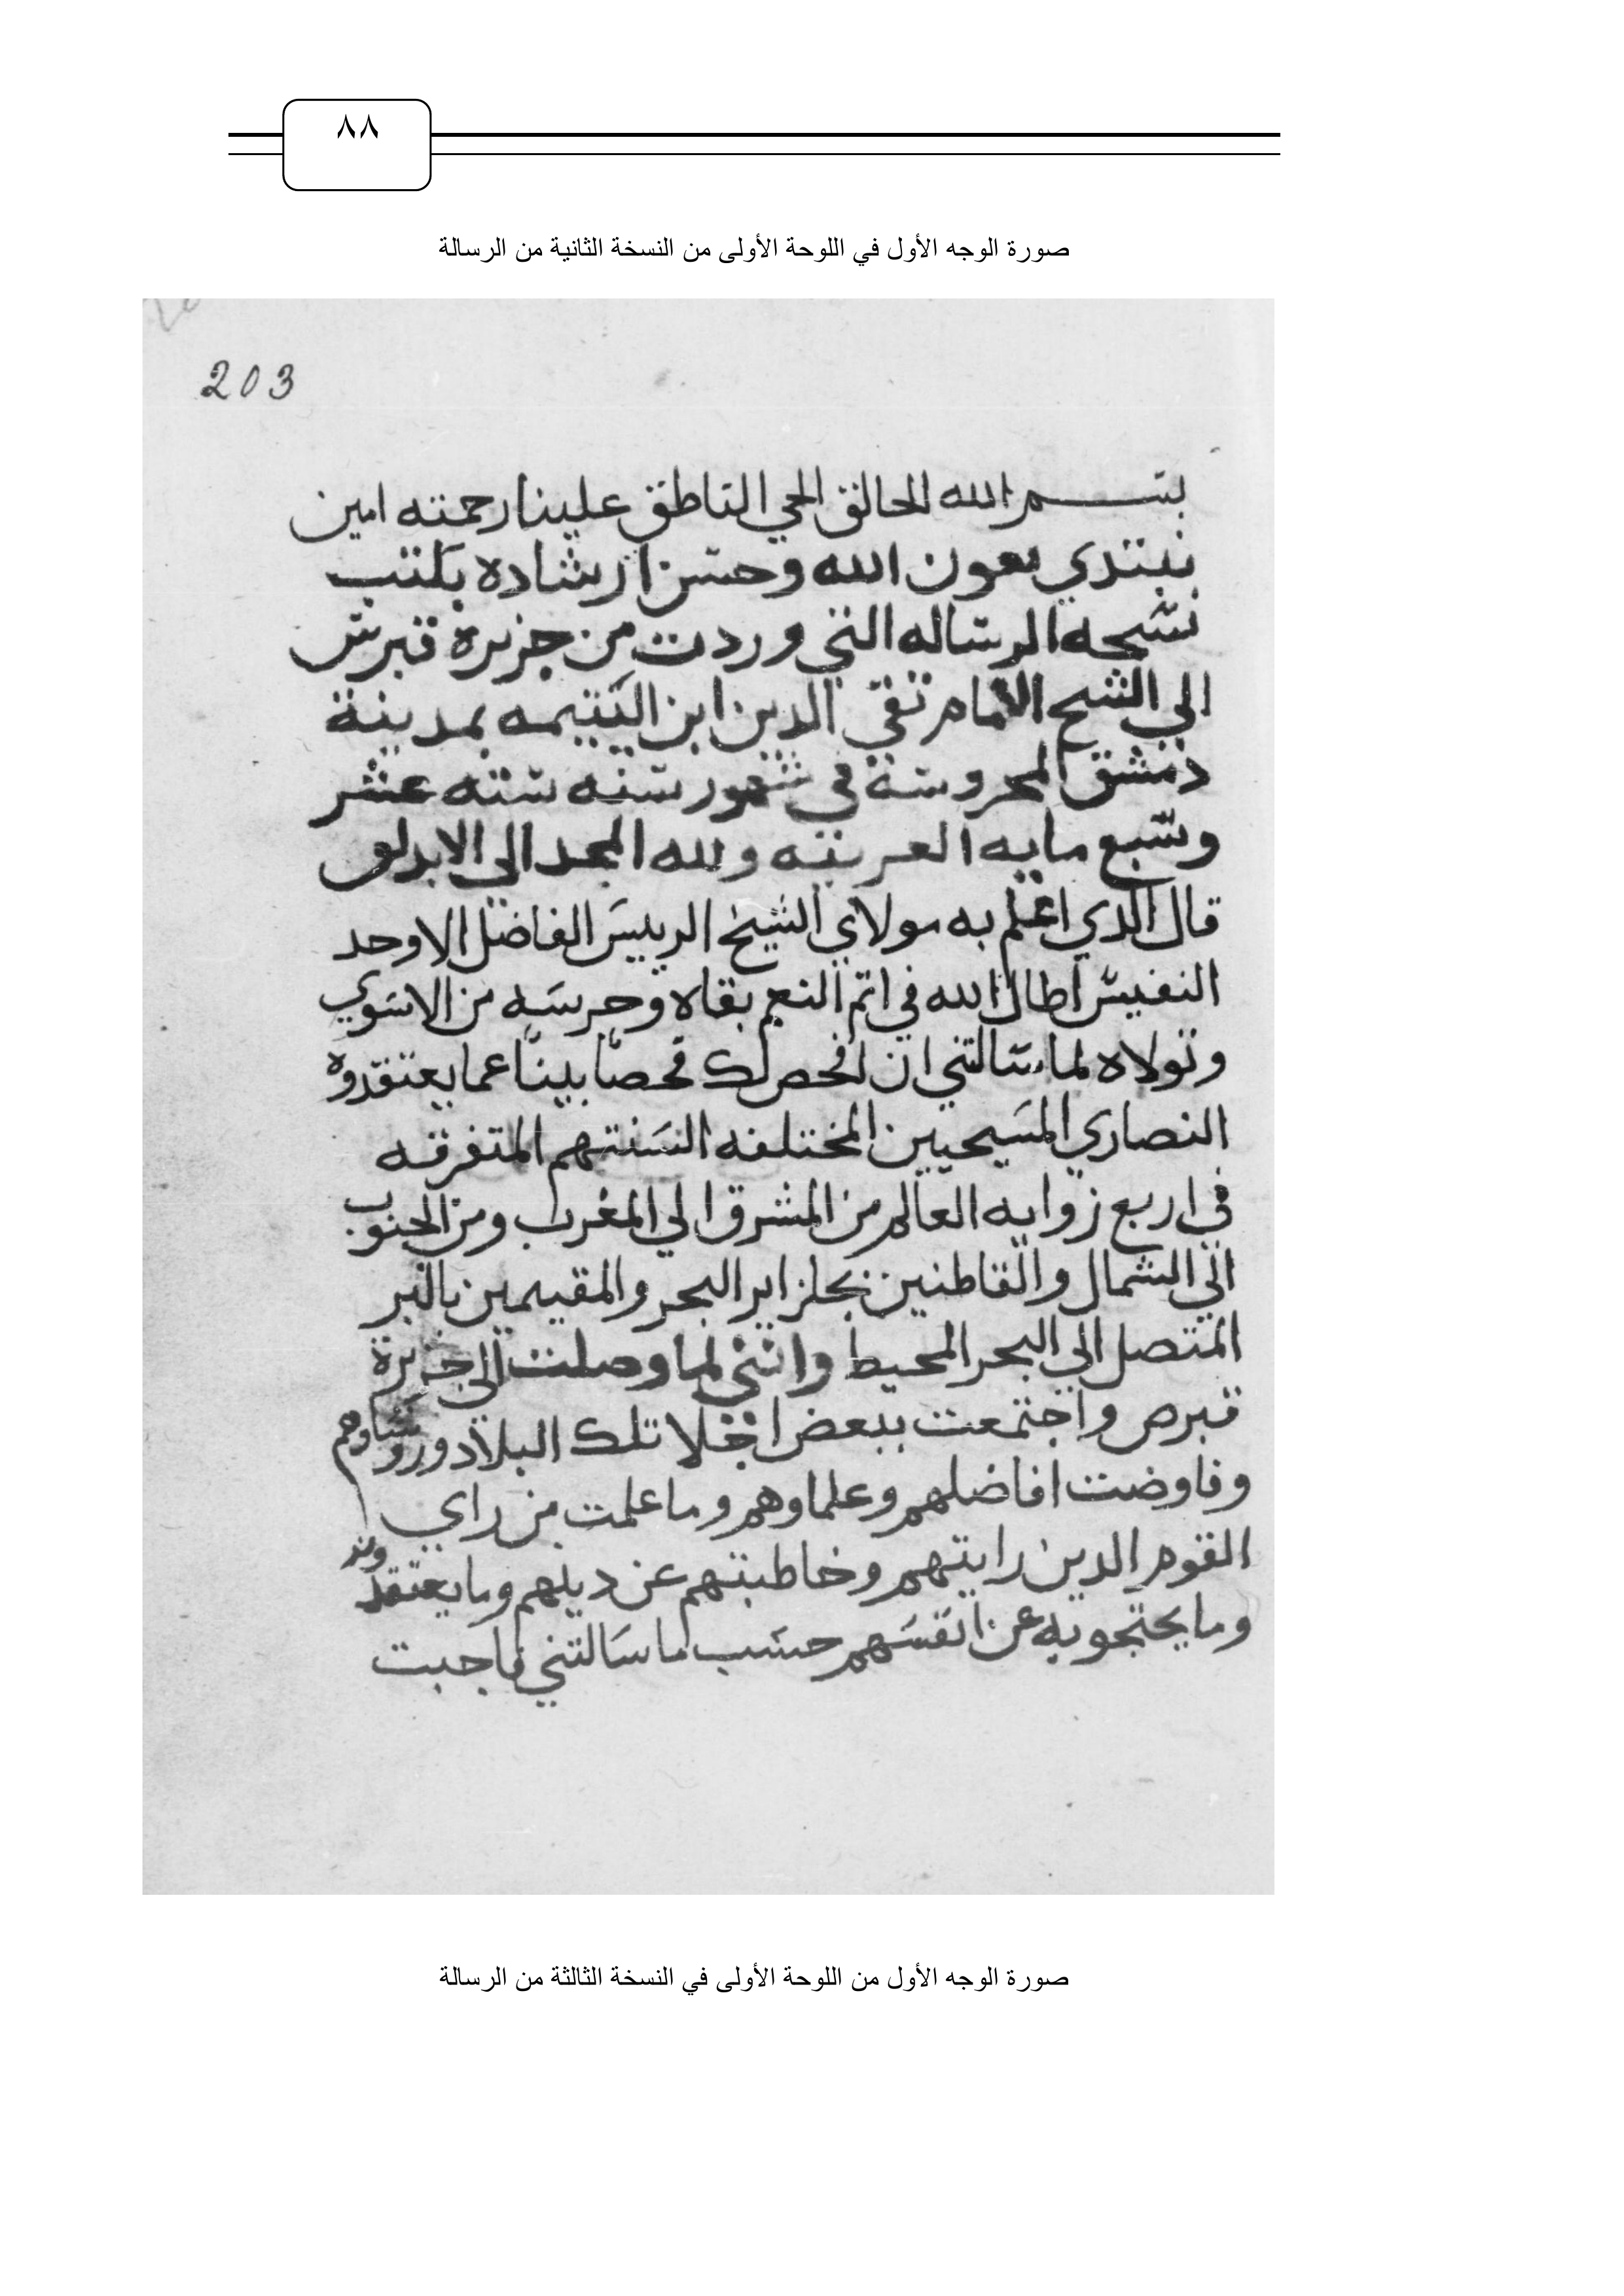 ٨٨
صورة الوجه الأول في اللوحة الأولى من النسخة الثانية من الرسالة
203
بسم الله الخالق الحي الناطق علينا رحمته امين
نبتدي بعون الله وحسن ارشاده بكتب
نسخه الرساله التي وردت من جزيرة قبرس
الي الشيح الامام تقي الدين ابن التيميه بمدينة
دمشق المحروسة في شهور سنه سته عشر
وسبع مايه العربيه ولله المجد الي الابد
قال الدي اعلم به مولاي الشيخ الرييس الفاضل الاوحد
النفيس اطال الله في اتم النعم بقاه وحرسه من الاسوي
وتولاه لما سالتني ان افحص لك فحصا بينا عما يعتقدوه
النصاري المسيحيين المختلفه السنتهم المتفرقه
في اربع زوايه العالم من المشرق الي المغرب ومن الجنوب
الي الشمال والقاطنين بجزاير البحر والمقيمين بالبر
المتصل الي البحر المحيط وانني لما وصلت الي جزيرة
قبرص واجتمعت ببعض اخلا تلك البلاد وروساوهم
وفاوضت افاضلهم وعلماوهم وما علمت من راي
القوم الدين رايتهم وخاطبتهم عن دينهم وما يعتقدونه
وما يحتجو به عن انفسهم حسب ما سالتني فاجبت
صورة الوجه الأول من اللوحة الأولى في النسخة الثالثة من الرسالة